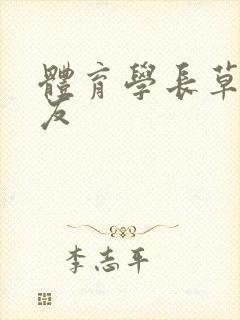 體育學長草
友
李志平